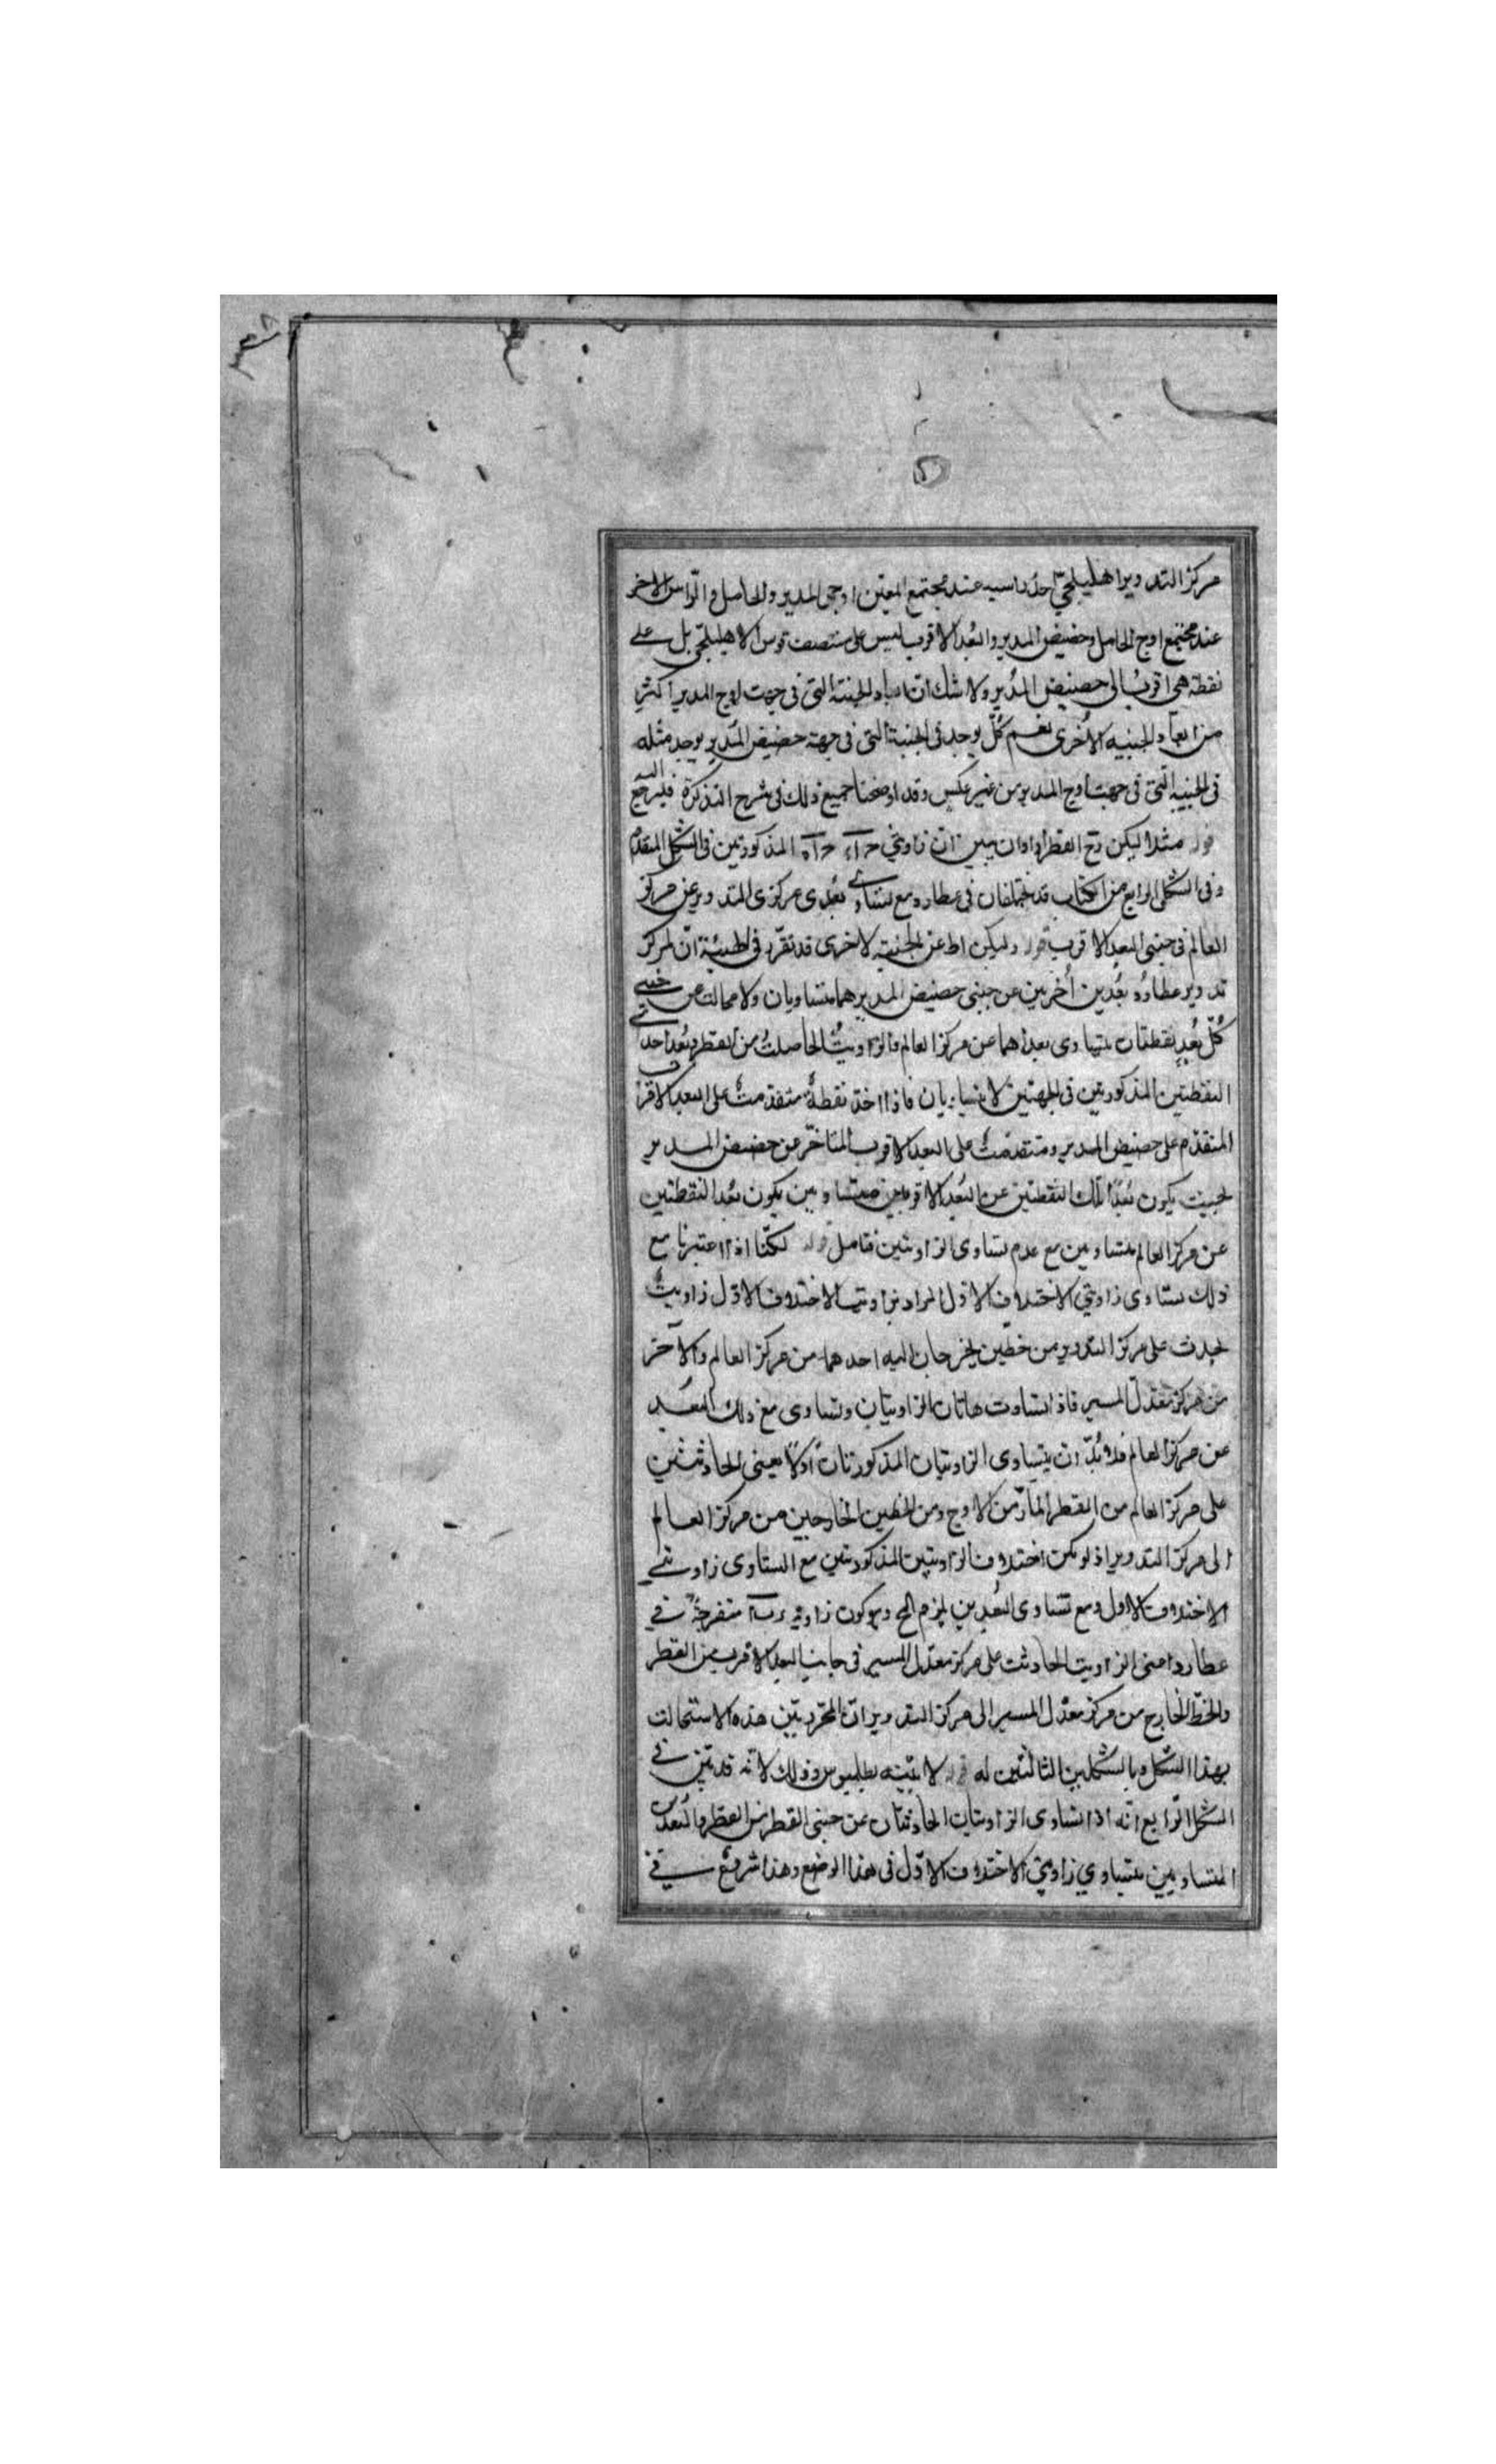 مركز التدوير اهليلجيّ احد راسيه عند مجتمع المعيّن اوجى المدير والحامل والرّاس الاخر
عند مجتمع اوج الحامل وحضيض المدير والبُعد الاقرب ليس على منتصف قوس الاهليلجى بل على
نقطة هى اقربُ الى حضيض المُدير ولا شك انّ ابعاد الجنبة التى فى جهت اوج المدير اكثر
من ابعاد الجنبيه الاُخرى نعم كُلّ يوجد فى الجنبة التى فى جهة حضيض المُدير يوجد مثله
فى الجنبيه التى فى جهت اوج المدير من غير عكسٍ وقد اوضحنا جميع ذلك فى شرح التذكرة فليرجع اليه
قوله مثلا ليكن دح القطر اراد ان يبين انّ زاويتي المذكورتين فى الشكل المتقدم
وفى الشكل الرابع من الكتاب قد تختلفان فى عطارد مع تساوى بُعدى مركزى التدوير عن مركز
العالم فى جنبى البعد الاقرب قوله وليكن اط عن الجنبة الاخرى قد تقرّر فى الهيئة انّ لمركز
تدوير عطارد بُعدين اُخريين عن جنبى حضيض المدير هما متساويان ولا محالت عن جنبى
كُلّ بُعدٍ نقطتان يتساوى بعداهما عن مركز العالم فالزاويتُ الحاصلتُ من القطر وبُعد احدى
النقطتين المذكورتين فى الجهتين لا تتساويان فاذا اخذ نقطةٌ متقدمتٌ على البعد الاقرب
المتقدّم على حضيض المدير ومتقدمتٌ على البعد الاقرب المتاخّر عن حضيض المدير
بحيث يكون بُعدا تلك النقطتين عن البُعد الاقربين متساويين يكون بُعدا النقطتين
عن مركز العالم متساويين مع عدم تساوى الزاويتين فتامل قوله لكنّا اذا اعتبرنا مع
ذلك تساوى زاويتي الاختلاف الاوّل المراد بزاويتى الاختلاف الاوّل زاويتٌ
يحدث على مركز التدوير من خطين يخرجان اليه احدهما من مركز العالم والآخر
من مركز معدّل المسير فاذا تساوت هاتان الزاويتان وتساوى مع ذلك البُعد
عن مركز العالم فلا بُدّ ان يتساوى الزاويتان المذكورتان اوّلاً يعنى الحادثتين
على مركز العالم من القطر المارّ من الاوج ومن الخطين الخارجين من مركز العالم
الى مركز التدوير اذ لو يمكن اختلاف الزاويتين المذكورتين مع التساوى زاويتى
الاختلاف الاول ومع تساوى البُعدين يلزم المح وهو كون زاوية منفرجةً فى
عطارد اعنى الزاويت الحادثت على مركز معدّل المسير فى جانب البعد الاقرب من القطر
والخطّ الخارج من مركز معدّل المسير الى مركز التدوير انّ المحرّر بيّن هذه الاستحالت
بهذا الشكل وبالشكلين التاليين له قوله لا يبيّنه بطلميوس وذلك لانّه قد بيّن فى
الشكل الرّابع انّه اذا تساوى الزاويتان الحادثتان عن جنبى القطر من القطر والبُعدين
المتساويين يتساوي زاويتي الاختلاف الاوّل فى هذا الوضع وهذا شروع فى